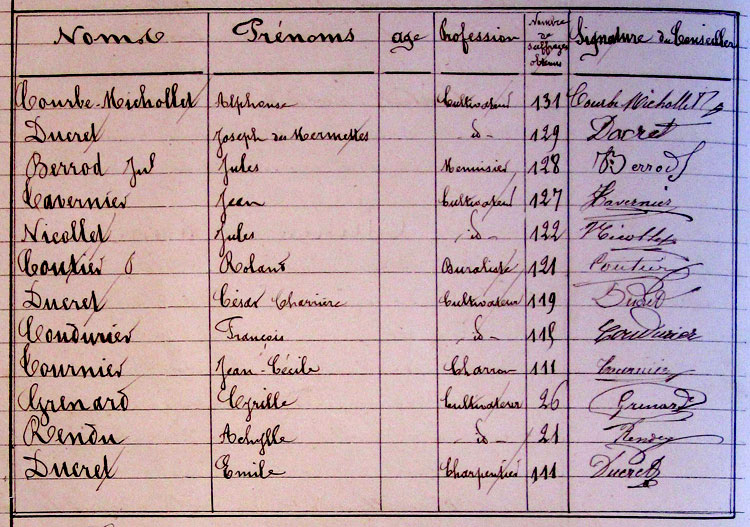 Noms Prénoms age Profession Nombre de suffrages obtenus Signature du Conseiller
Courbe-Michollet Alphonse Cultivateur 131 Courbe Michollet
Ducret Joseph des Mermettes id- 129 Ducret
Berrod Jul Jules Menuisier 128 Berrod
Tavernier Jean Cultivateur 127 Tavernier
Nicollet Jules id- 122 Nicollet
Coutier Roland Buraliste 121 Coutier
Ducret César Charrière Cultivateur 119 Ducret
Coudurier François id- 115 Coudurier
Tournier Jean-Cécile Charron 111 Tournier
Grenard Cyrille Cultivateur 26 Grenard
Rendu Achylle id- 21 Rendu
Ducret Emile Charpentier 111 Ducret